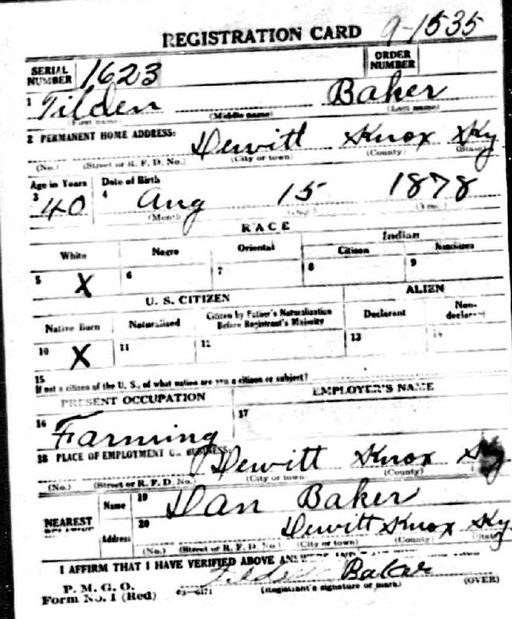 REGISTRATION CARD 9-1535
SERIAL NUMBER 1623 ORDER NUMBER
1 Tilden Baker
(First name) (Middle name) (Last name)
2 PERMANENT HOME ADDRESS: Dewitt Knox Ky
(No.) (Street or R. F. D. No.) (City or town) (County) (State)
Age in Years Date of Birth
3 40 4 Aug 15 1878
(Month) (Year)
RACE
White Negro Oriental Indian
Citizen
5 X 6 7 8 9
U. S. CITIZEN ALIEN
Native Born Naturalized Citizen by Father's Naturalization Before Registrant's Majority Declarant Non-declarant
10 X 11 12 13 14
15
If not a citizen of the U. S., of what nation are you a citizen or subject?
PRESENT OCCUPATION EMPLOYER'S NAME
16 Farming 17
18 PLACE OF EMPLOYMENT OR BUSINESS:
Dewitt Knox Ky
(No.) (Street or R. F. D. No.) (City or town) (County)
NEAREST RELATIVE Name 19 Dan Baker
Address 20 Dewitt Knox Ky
(No.) (Street or R. F. D. No.) (City or town) (County) (State)
I AFFIRM THAT I HAVE VERIFIED ABOVE ANSWERS AND
Tilden Baker
P. M. G. O.
Form No. 1 (Red) 03-6171 (Registrant's signature or mark) (OVER)